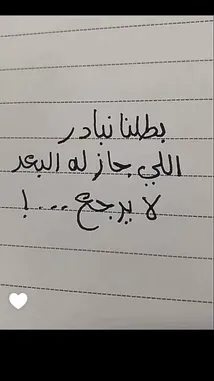 بطلنا نبادر
اللي جاز له البعد
لا يرجع ...!